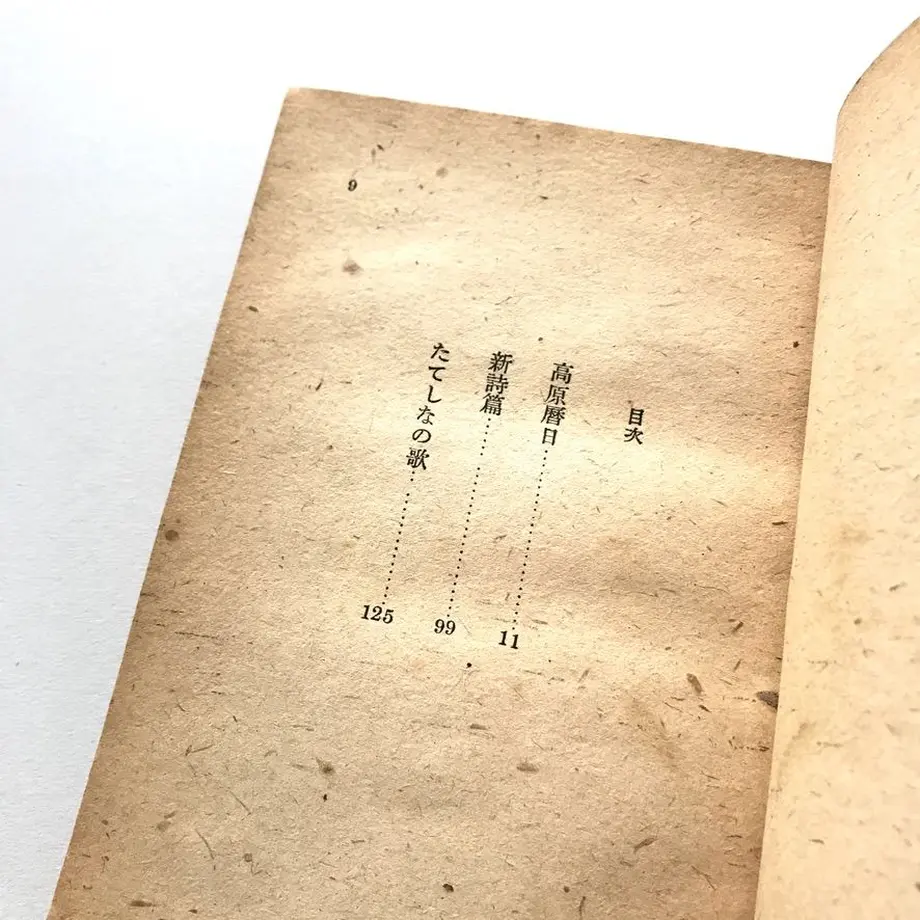 目次
高原暦日 11
新詩篇 99
たてしなの歌 125
9